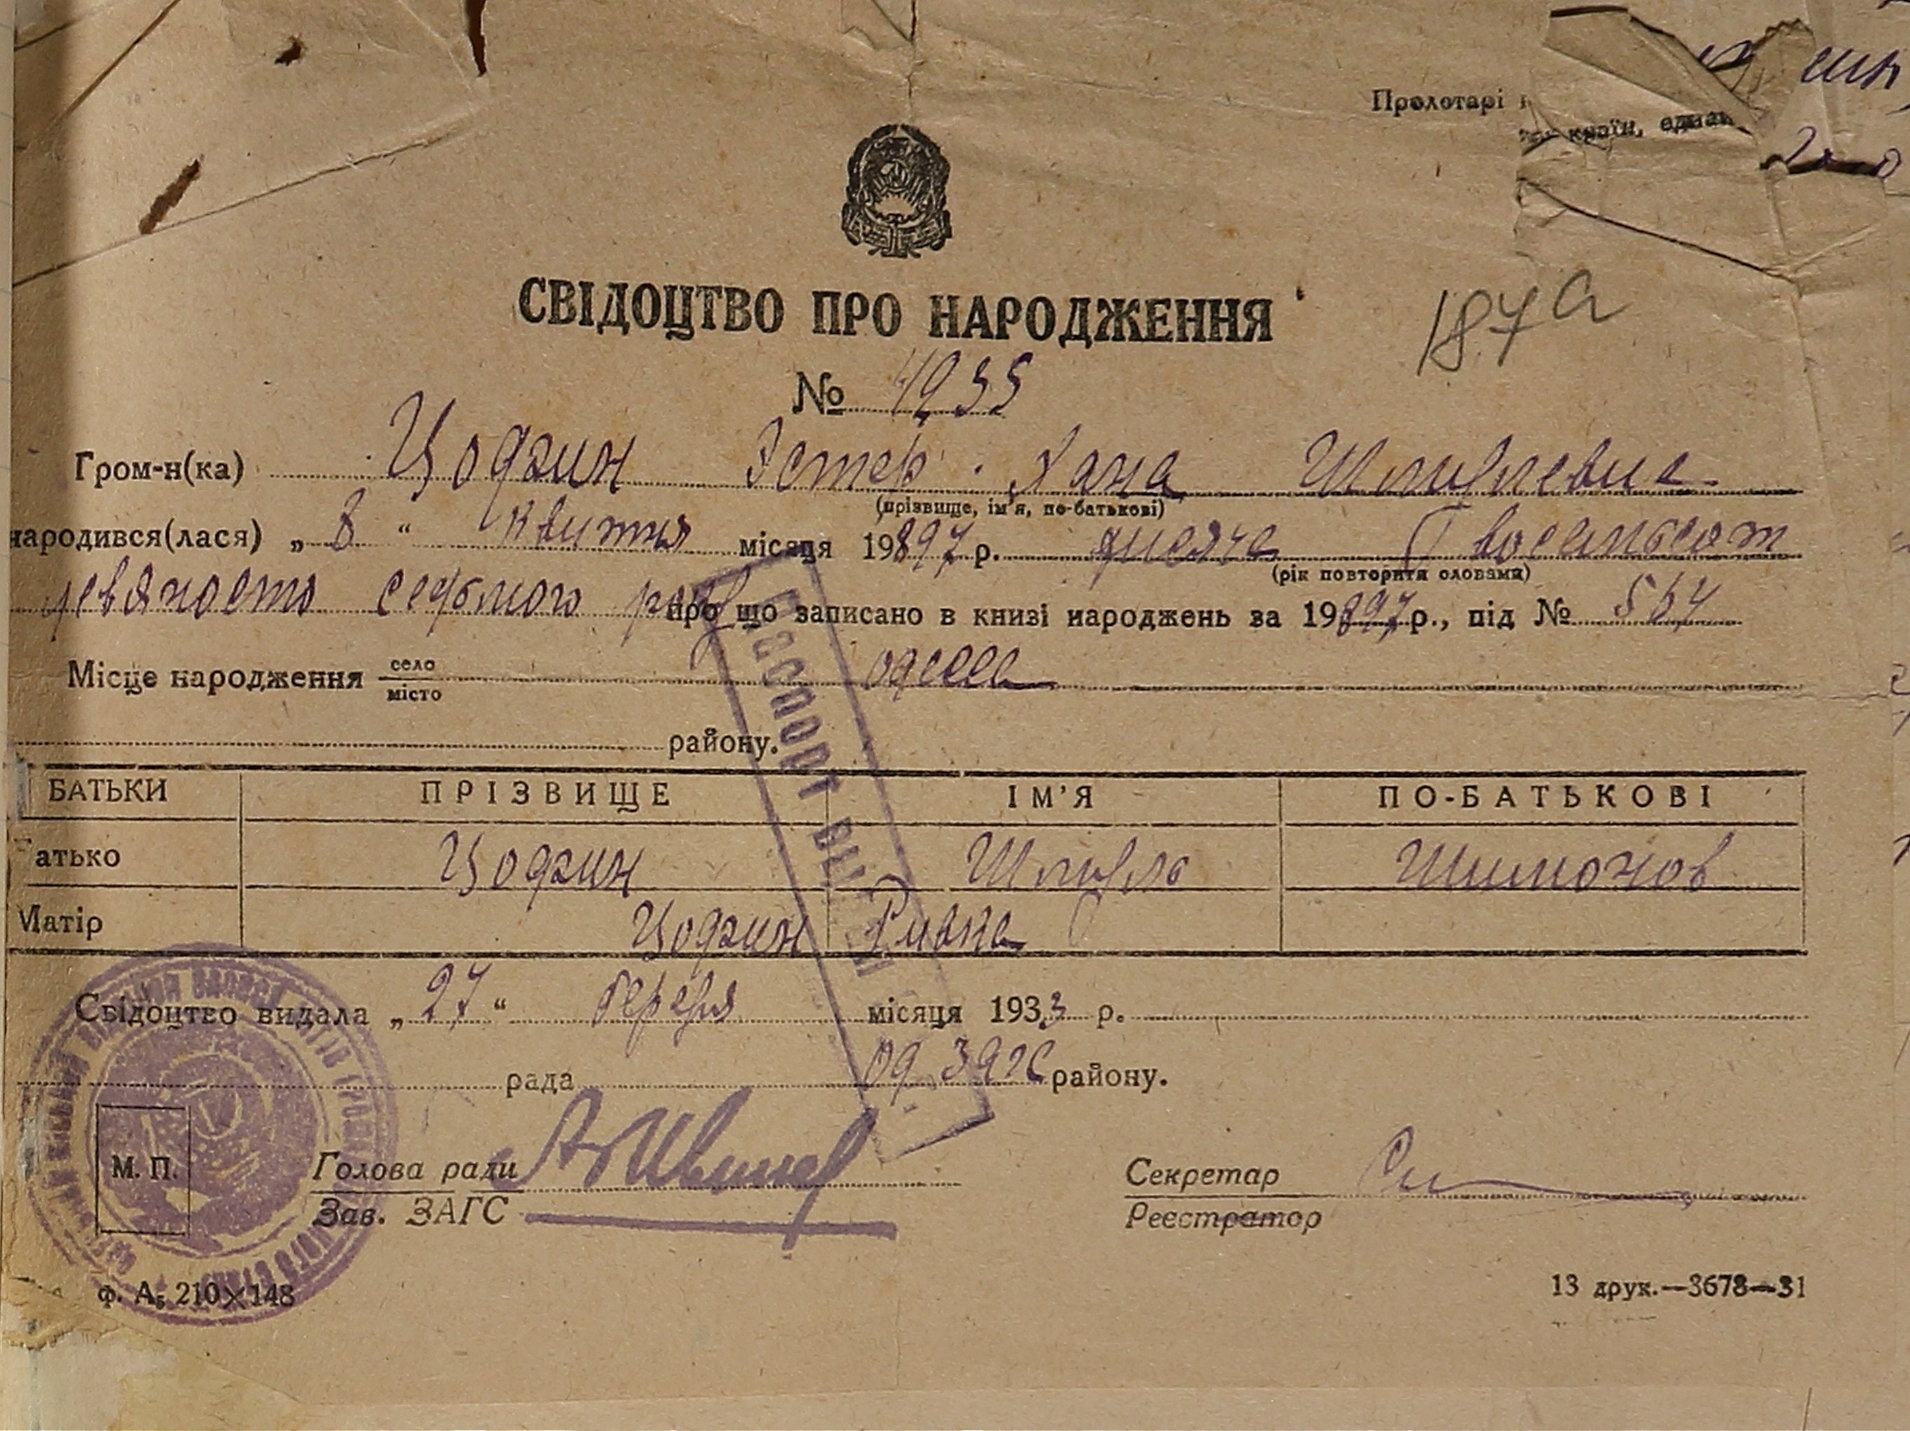 Пролетарі
країн, еднай
СВІДОЦТВО ПРО НАРОДЖЕННЯ
187а
№ 4955
Гром-н(ка) Цодзин Эстер-Хана Шмулевна
(прізвище, ім'я, по-батькові)
народився(лася) „8“ квитня місяця 19897 р. тисяча восемьсот
(рік повторити словами)
девяносто седьмого року про що записано в книзі народжень за 19897 р., під № 564
Місце народження село місто Одесса
району.
БАТЬКИ ПРІЗВИЩЕ ІМ'Я ПО-БАТЬКОВІ
Батько Цодзин Шмуль Шимонов
Матір Цодзин Ривка
Свідоцтво видала „27“ березня місяця 1933 р.
рада Од ЗАГС району.
Паспорт
М. П. Голова ради Секретар
Зав. ЗАГС Реєстратор
ф. А5 210×148 13 друк.—3678—31